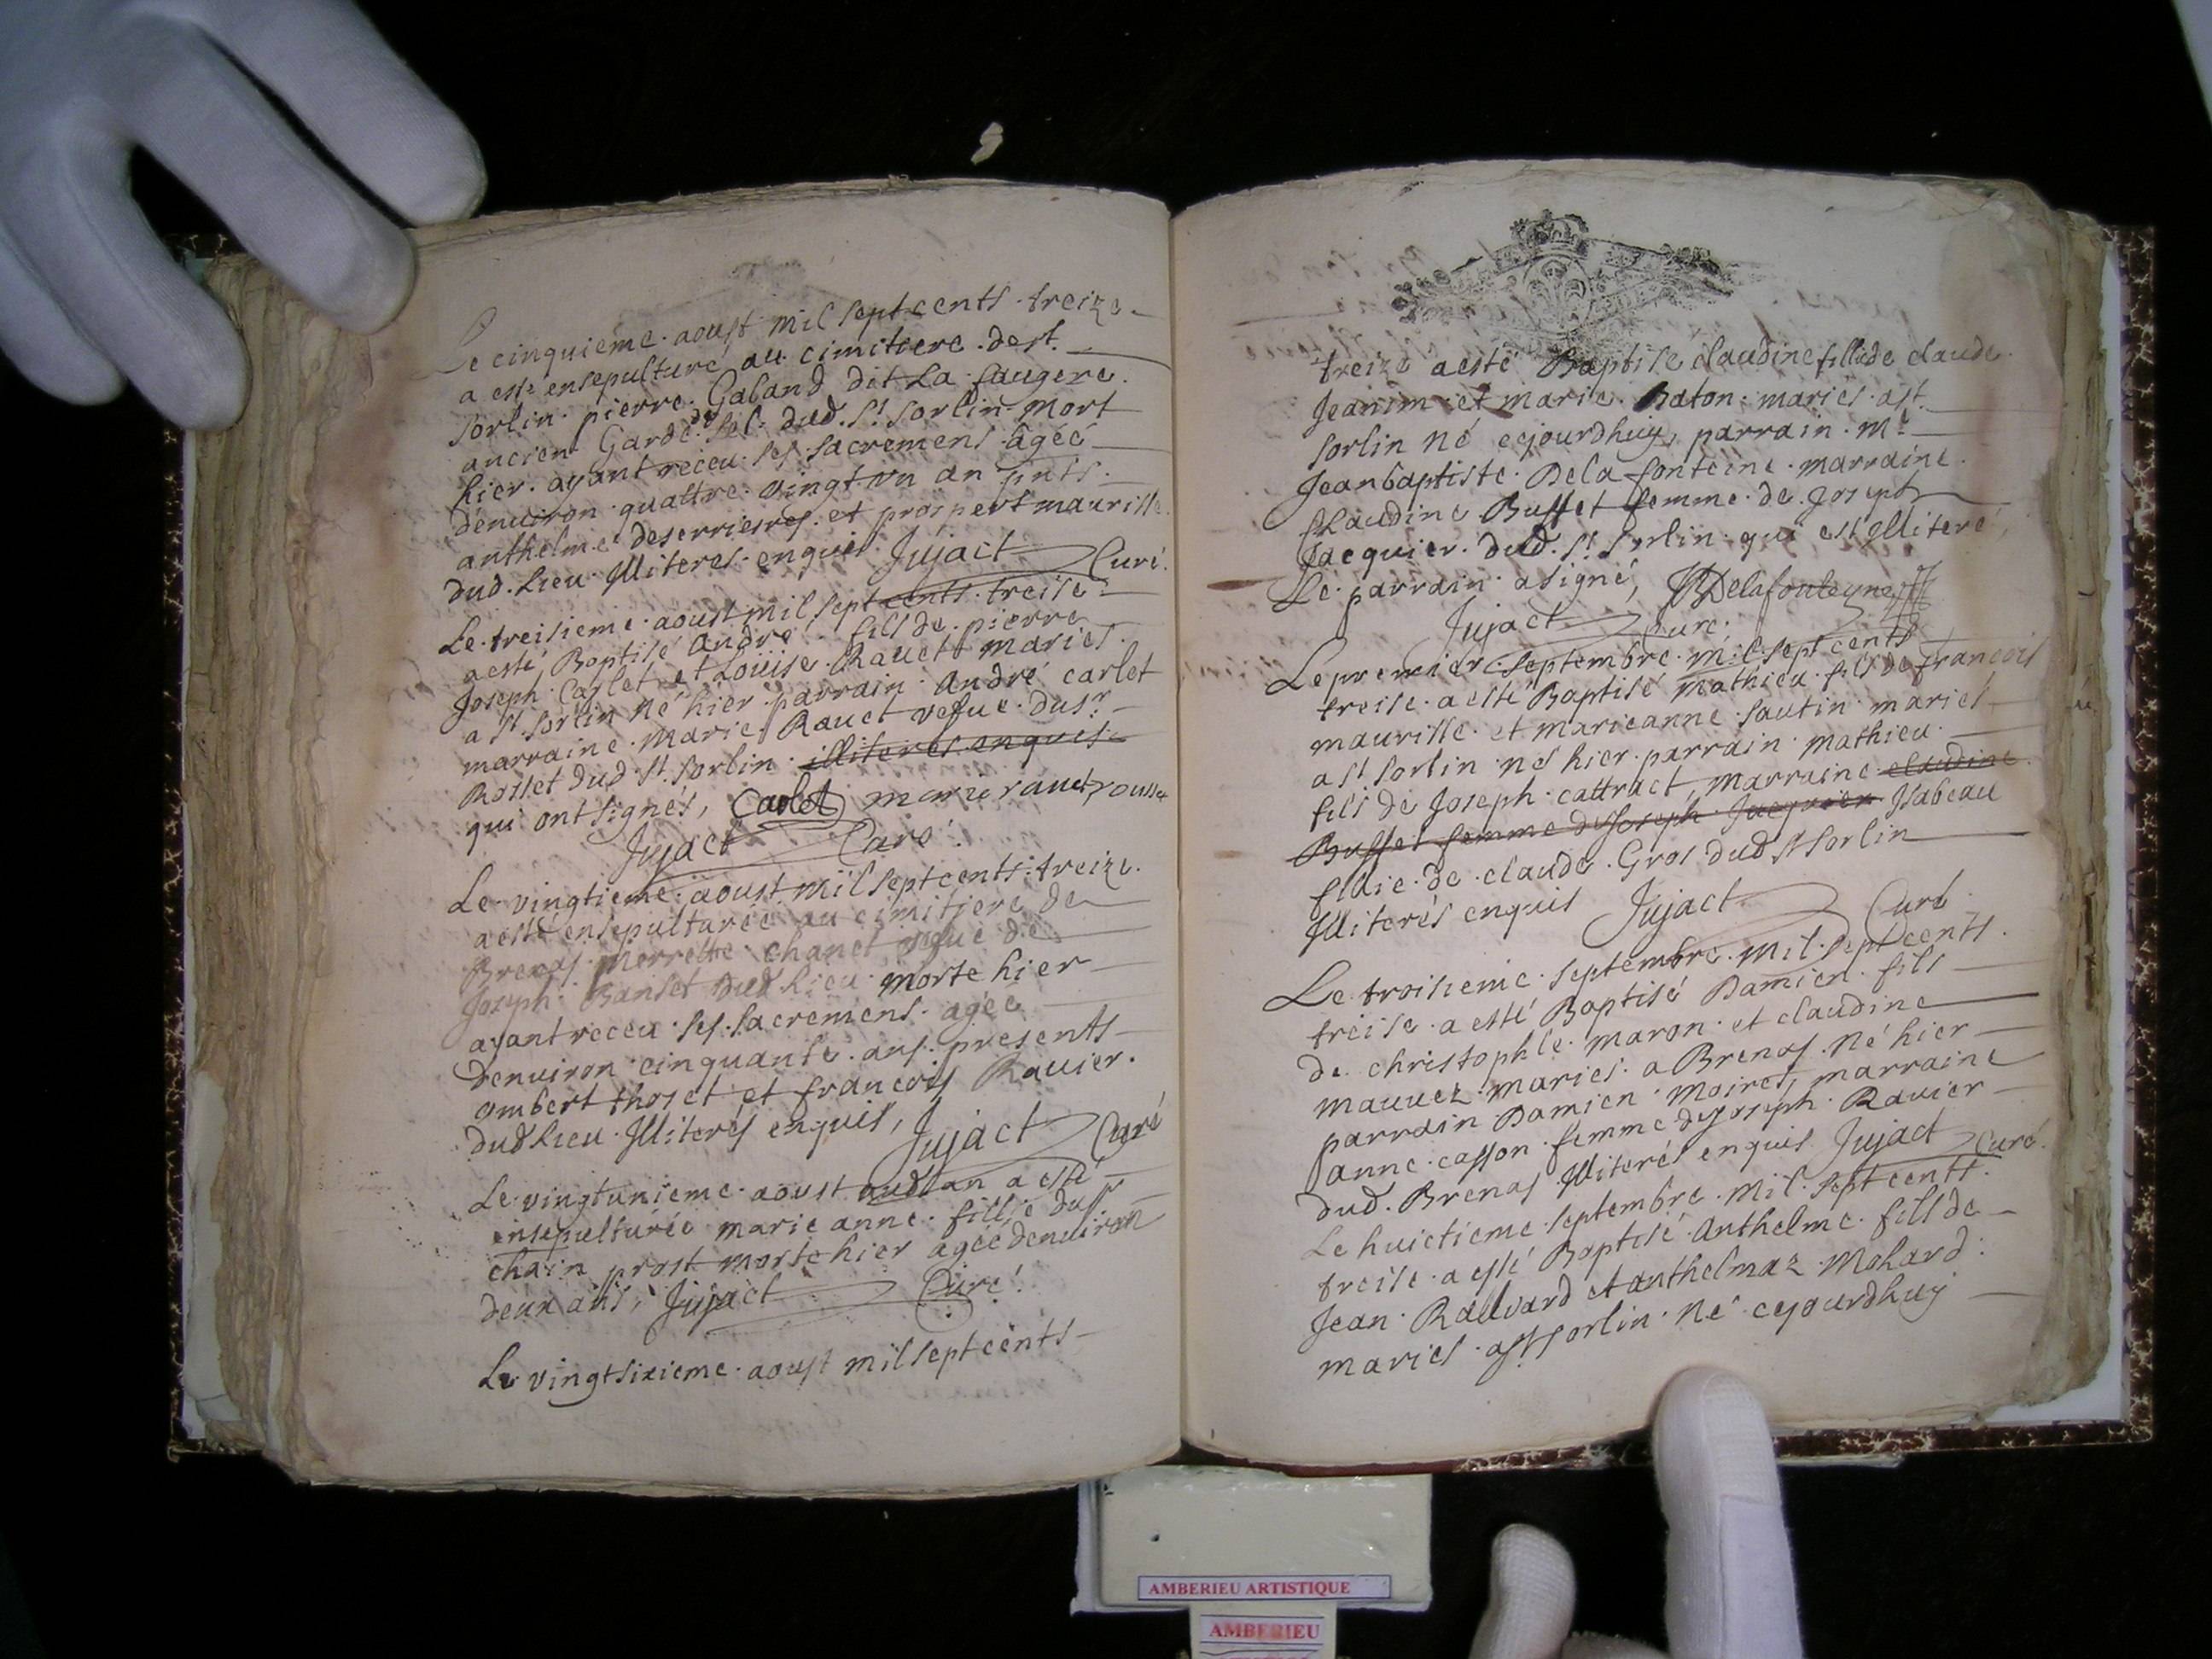 Le cinquieme aoust mil sept cents treize
a esté ensepulturé au cimitiere de st.
sorlin pierre Galand dit La faugere
ancien Garde de sel dud. St sorlin mort
hier ayant receu ses sacremens agéé
denuiron quattre vingt un an pnts
anthelme deserrieres et prospert maurisse
dud. Lieu Illiteres enquis Jujact Curé
Le treisieme aoust mil sept cents treise
a esté Baptisé André fils de pierre
Joseph Carlet et Loüise Rauet mariés
a St sorlin né hier parrain André carlet
marraine Marie Rauet vefue du sr
Rosset dud St sorlin illiteres enquis
qui ont signés, Carlet marie rauet
Jujact Curé
Le vingtieme aoust mil sept cents treize
a esté ensepulturéé au cimitiere de
Brenas perrette chanet de
Joseph Banset dud Lieu morte hier
ayant receu ses sacremens agéé
denuiron cinquante ans presents
ombert thoset et francois Rauier
dud Lieu Illiterés enquis, Jujact Curé
Le vingtunieme aoust aud an a esté
ensepulturéé marie anne fillie du sr
chain prost morte hier agéé denuiron
deux ans, Jujact Curé
Le vingtsixieme aoust mil sept cents
treize a esté Baptisé claudine fillie de claude
Jeanim et marie Baton mariés a st
sorlin né cejourdhuy, parrain Mr
Jean baptiste De la fonteine marraine
Claudine Buffet femme de Joseph
Jacquier dud. St sorlin qui est Illiteré,
Le parrain a signé, JB Delafonteyne
Jujact Curé
Le premier septembre mil sept cents
treise a esté Baptisé Mathieu fils de francois
maurisse et marie anne sautin mariés
a St sorlin nés hier parrain mathieu
fils de Joseph cattract, marraine claudine
Buffet femme de Joseph Jacquier Isabeau
fillie de claude Gros dud St sorlin
Illiterés enquis Jujact Curé
Le troisieme septembre mil sept cents
treise a esté Baptisé Damien fils
de christophle maron et claudine
mauuez mariés a Brenas né hier
parrain Damien Moiret, marraine
anne casson femme de Joseph Rauier
dud. Brenas Illiterés enquis Jujact Curé
Le huictieme septembre mil sept cents
treise a esté Baptisé Anthelme fils de
Jean Rauuard et anthelmaz Mohard
mariés a St sorlin né cejourdhuy
AMBERIEU ARTISTIQUE
AMBERIEU